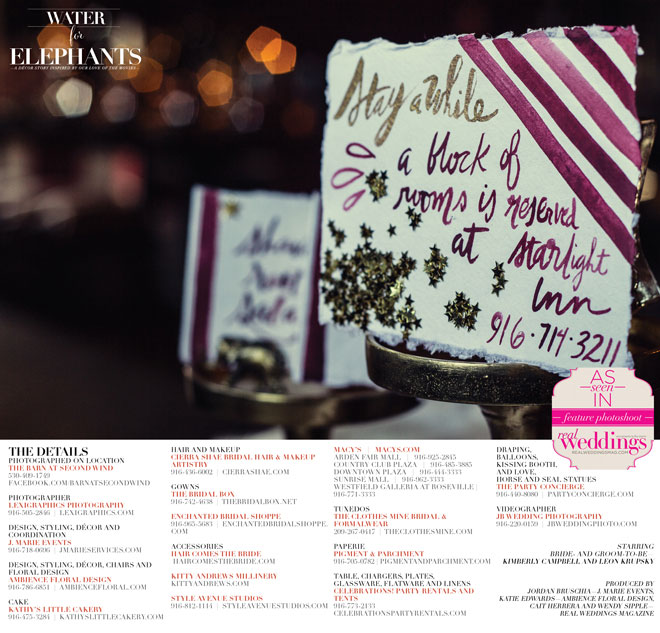 WATER
for
ELEPHANTS
A DÉCOR STORY INSPIRED BY OUR LOVE OF THE MOVIES
Stay a while
a block of
rooms is reserved
at starlight
Inn
916·714·3211
AS
seen
IN
feature photoshoot
real
weddings
REALWEDDINGSMAG.COM
THE DETAILS
PHOTOGRAPHED ON LOCATION
THE BARN AT SECOND WIND
530-409-4749
FACEBOOK.COM/BARNATSECONDWIND
PHOTOGRAPHER
LEXIGRAPHICS PHOTOGRAPHY
916-505-2846 | LEXIGRAPHICS.COM
DESIGN, STYLING, DÉCOR AND
COORDINATION
J. MARIE EVENTS
916-718-0696 | JMARIESERVICES.COM
DESIGN, STYLING, DÉCOR, CHAIRS AND
FLORAL DESIGN
AMBIENCE FLORAL DESIGN
916-786-6851 | AMBIENCEFLORAL.COM
CAKE
KATHY'S LITTLE CAKERY
916-475-3284 | KATHYSLITTLECAKERY.COM
HAIR AND MAKEUP
CIERRA SHAE BRIDAL HAIR & MAKEUP
ARTISTRY
916-436-6002 | CIERRASHAE.COM
GOWNS
THE BRIDAL BOX
916-742-4638 | THEBRIDALBOX.NET
ENCHANTED BRIDAL SHOPPE
916-965-5683 | ENCHANTEDBRIDALSHOPPE.
COM
ACCESSORIES
HAIR COMES THE BRIDE
HAIRCOMESTHEBRIDE.COM
KITTY ANDREWS MILLINERY
KITTYANDREWS.COM
STYLE AVENUE STUDIOS
916-812-1114 | STYLEAVENUESTUDIOS.COM
MACY'S | MACYS.COM
ARDEN FAIR MALL | 916-925-2815
COUNTRY CLUB PLAZA | 916-485-3885
DOWNTOWN PLAZA | 916-444-3333
SUNRISE MALL | 916-962-3333
WESTFIELD GALLERIA AT ROSEVILLE |
916-771-3333
TUXEDOS
THE CLOTHES MINE BRIDAL &
FORMALWEAR
209-267-0417 | THECLOTHESMINE.COM
PAPERIE
PIGMENT & PARCHMENT
916-705-0782 | PIGMENTANDPARCHMENT.COM
TABLE, CHARGERS, PLATES,
GLASSWARE, FLATWARE AND LINENS
CELEBRATIONS! PARTY RENTALS AND
TENTS
916-773-2133
CELEBRATIONSPARTYRENTALS.COM
DRAPING,
BALLOONS,
KISSING BOOTH,
AND LOVE,
HORSE AND SEAL STATUES
THE PARTY CONCIERGE
916-440-8080 | PARTYCONCIERGE.COM
VIDEOGRAPHER
JB WEDDING PHOTOGRAPHY
916-220-0159 | JBWEDDINGPHOTO.COM
STARRING
BRIDE- AND GROOM-TO-BE
KIMBERLY CAMPBELL AND LEON KRUPSKY
PRODUCED BY
JORDAN BRUSCHIA—J. MARIE EVENTS,
KATIE EDWARDS—AMBIENCE FLORAL DESIGN,
CAIT HERRERA AND WENDY SIPPLE—
REAL WEDDINGS MAGAZINE